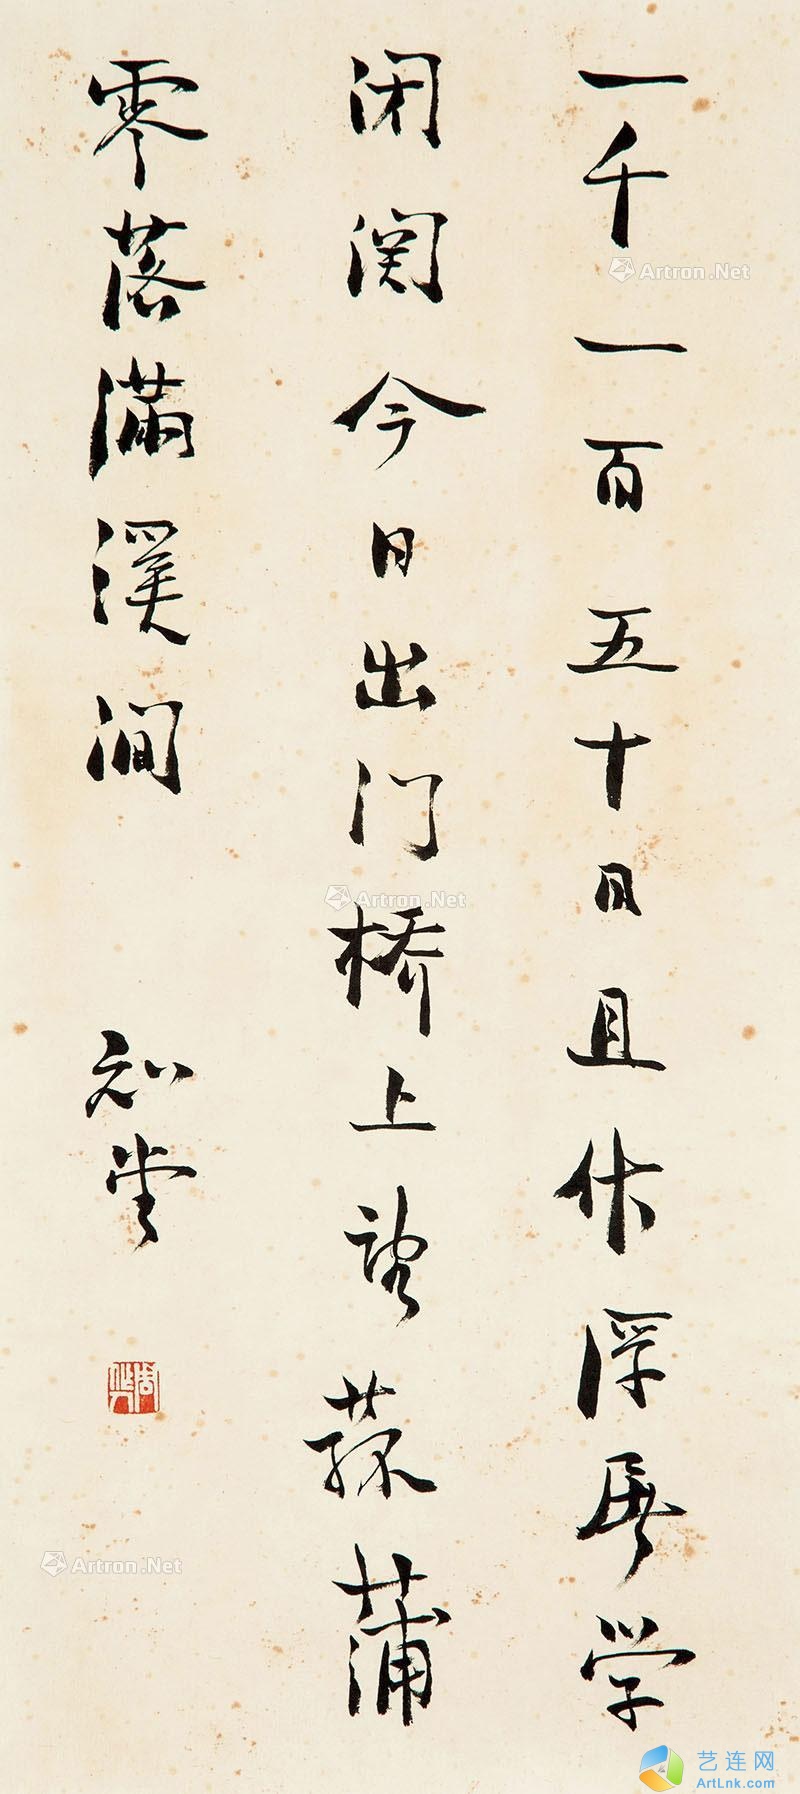 一千一百五十日且作浮屠学
闭关今日出门桥上望菰蒲
零落满溪涧
知堂
Artron.Net
Artron.Net
Artron.Net
艺连网
ArtLnk.com